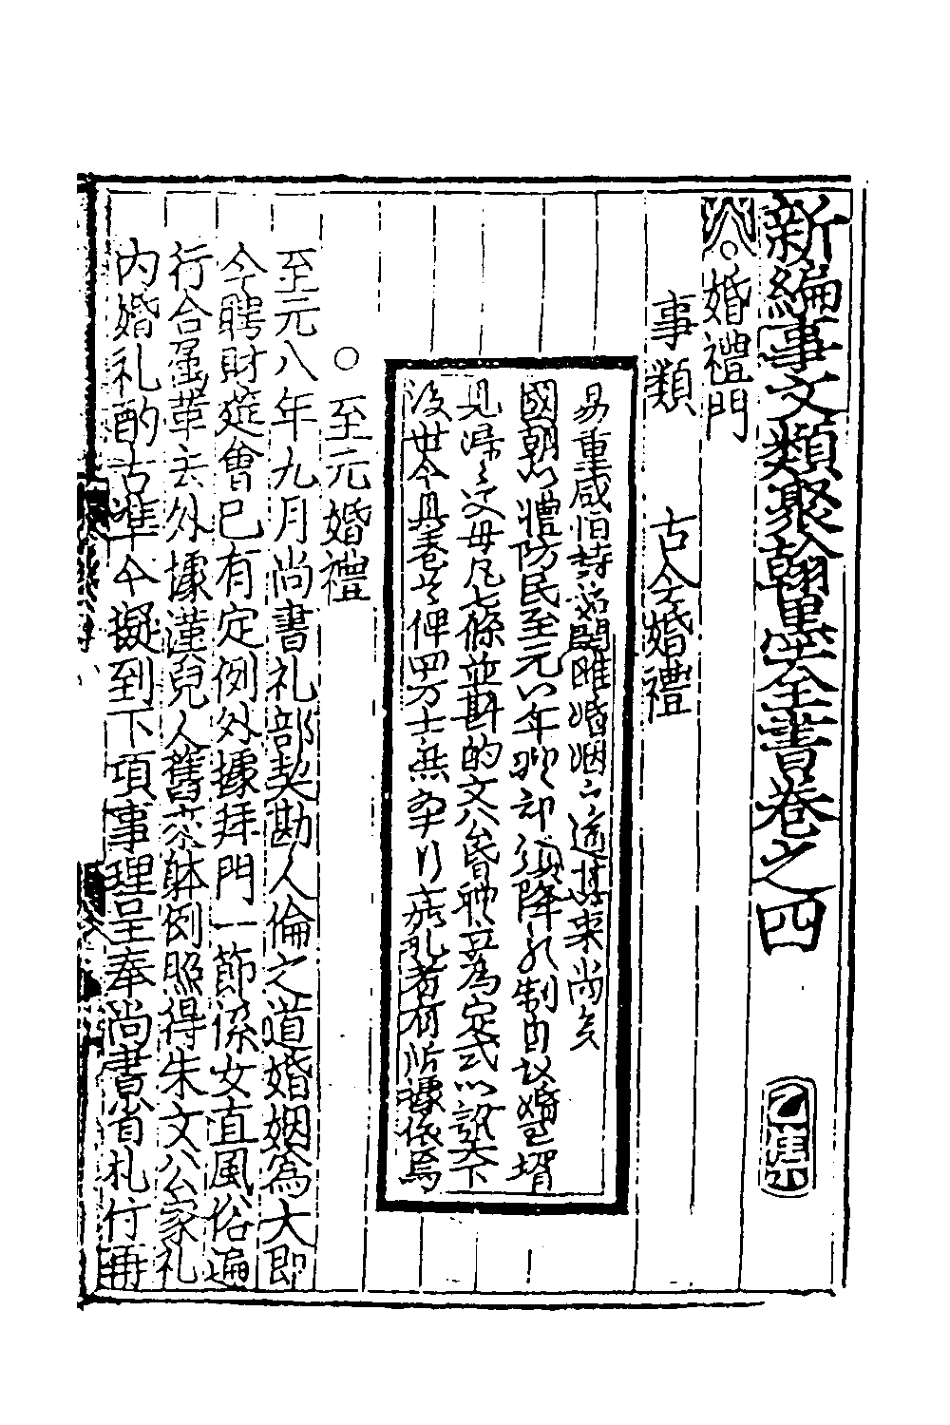 新編事文類聚翰墨全書卷之四 乙集
○婚禮門
事類 古今婚禮
易重咸恒詩始關雎婚姻之道其來尚矣
國朝以禮防民至元八年欽奉降不制自婚書聘
見歸之父母凡七條並斟酌文公昏禮立為定式以訓天下
後世今具卷首俾四方士庶知行古礼者有所據依焉
○至元婚禮
至元八年九月尚書礼部契勘人倫之道婚姻為大即
今聘財筵會已有定例外據拜門一節係女直風俗遍
行合屬革去外據漢兒人舊來躰例照得朱文公家礼
內婚礼酌古準今擬到下項事理呈奉尚書省札付再